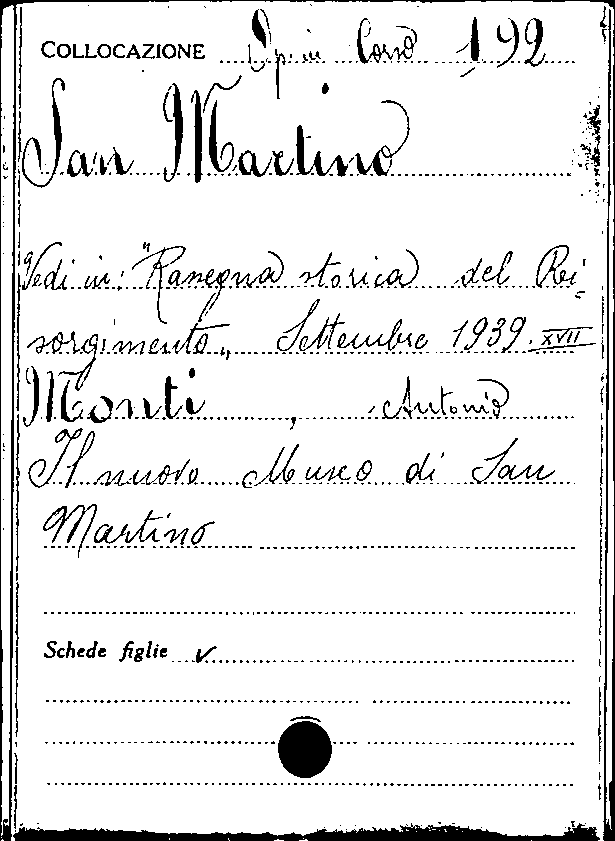 COLLOCAZIONE Op. in Corso 192
San Martino
Vedi in: "Rassegna storica del Ri=
sorgimento„ Settembre 1939.XVII
Monti, Antonio
Il nuovo Museo di San
Martino
Schede figlie ✓